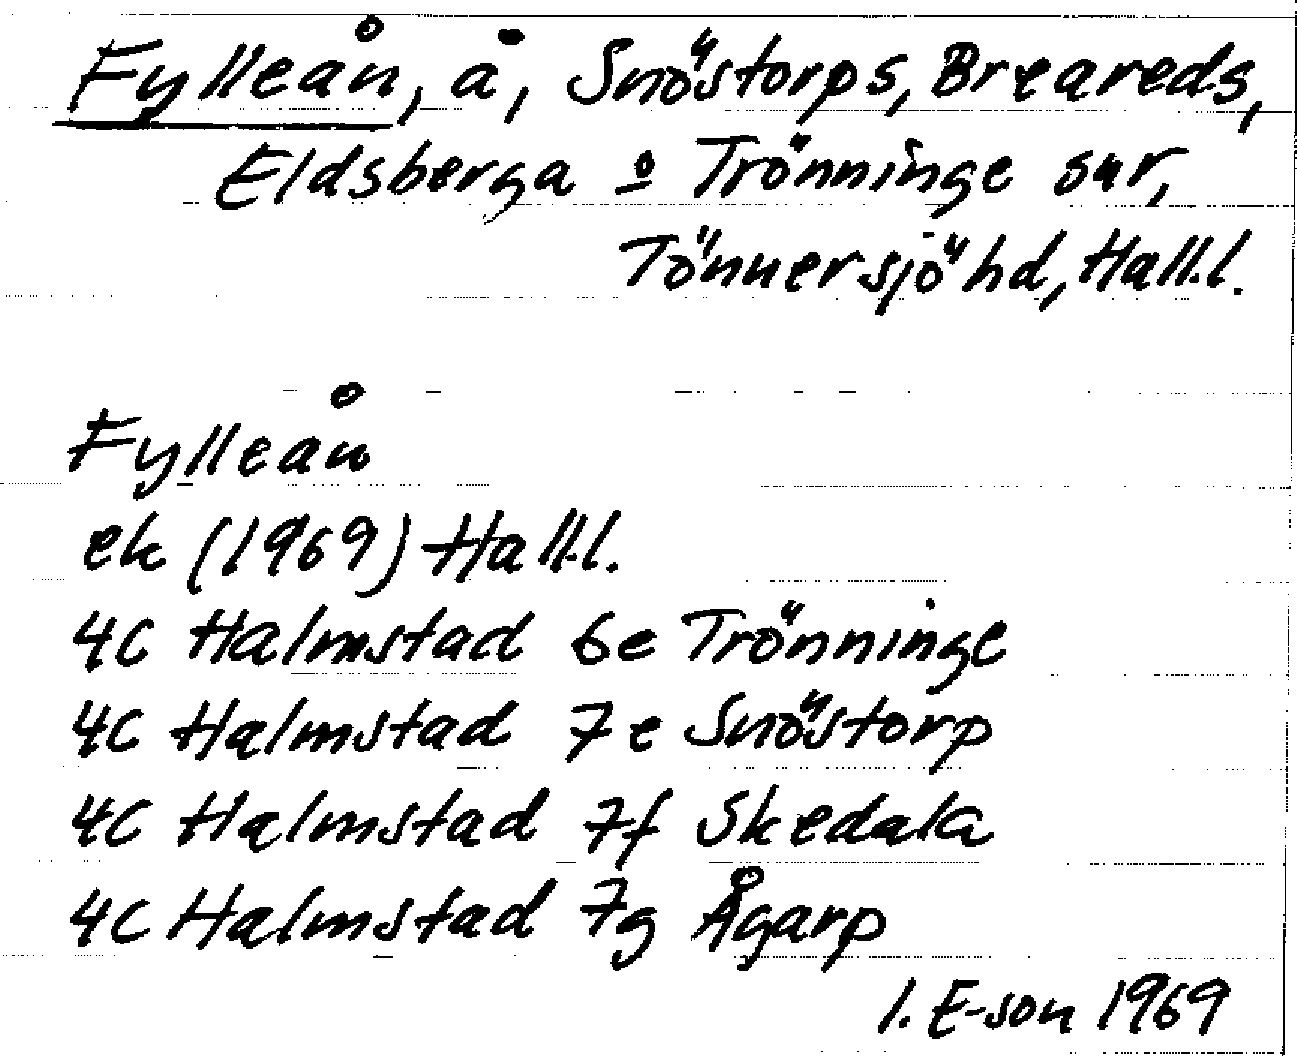 Fylleån, å, Snöstorps, Breareds,
Eldsberga o Trönninge snr,
Tönnersjö hd, Hall.l.
Fylleån
ek (1969) Hall.l.
4C Halmstad 6e Trönninge
4C Halmstad 7e Snöstorp
4C Halmstad 7f Skedala
4C Halmstad 7g Ågarp
I. E-son 1969